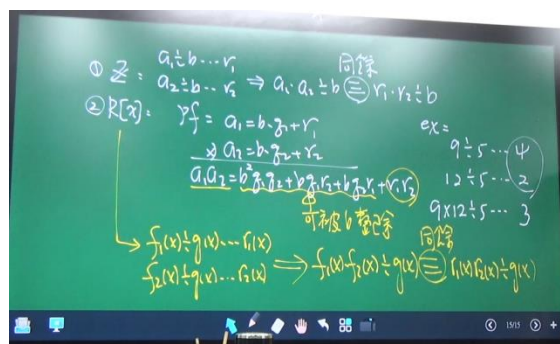 ① Z : a₁÷b…r₁
a₂÷b…r₂ ⇒ a₁·a₂÷b ≡ r₁·r₂÷b
同餘
② R[x]: pf = a₁=b·q₁+r₁
×) a₂=b·q₂+r₂
a₁a₂=b²q₁q₂+bq₁r₂+bq₂r₁+r₁r₂
可被b整除
ex=
9÷5…4
12÷5…2
9×12÷5…3
f₁(x)÷g(x)…r₁(x)
f₂(x)÷g(x)…r₂(x) ⇒ f₁(x)f₂(x)÷g(x) ≡ r₁(x)r₂(x)÷g(x)
同餘
15/15